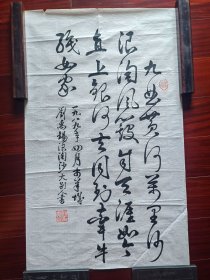 九曲黄河万里沙
浪淘风簸自天涯如今
直上银河去同到牵牛
织女家
一九八九年四月
刘禹锡浪淘沙